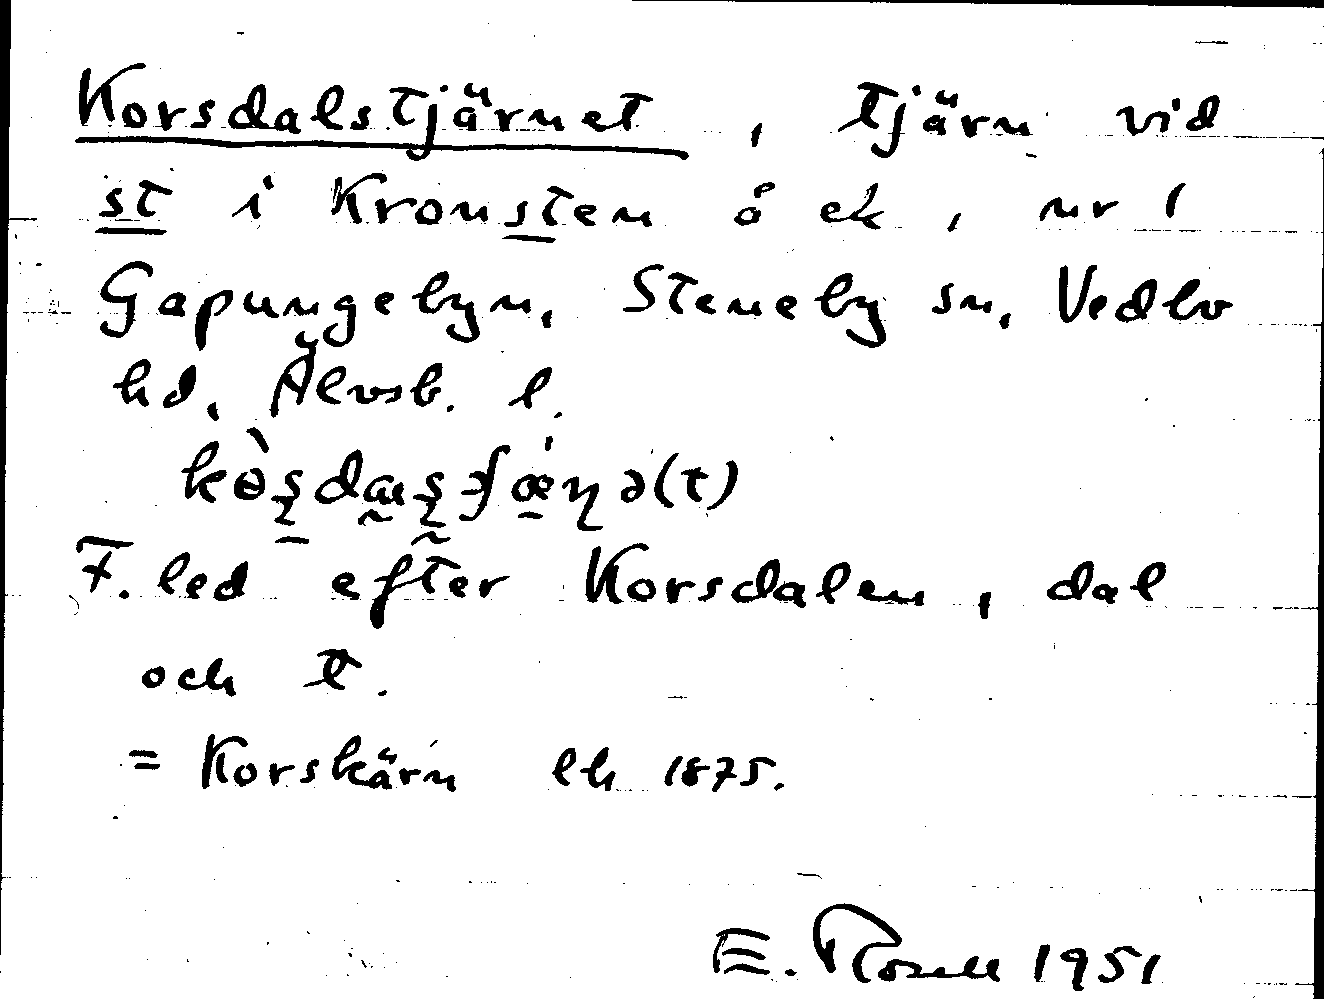 Korsdalstjärnet, tjärn vid
st i Kronsten å ek, nr 1
Gapungebyn, Steneby sn, Vedbo
hd, Älvsb. l.
F. led efter Korsdalen, dal
och t.
= Korskärn lh 1875.
E. Rosell 1951